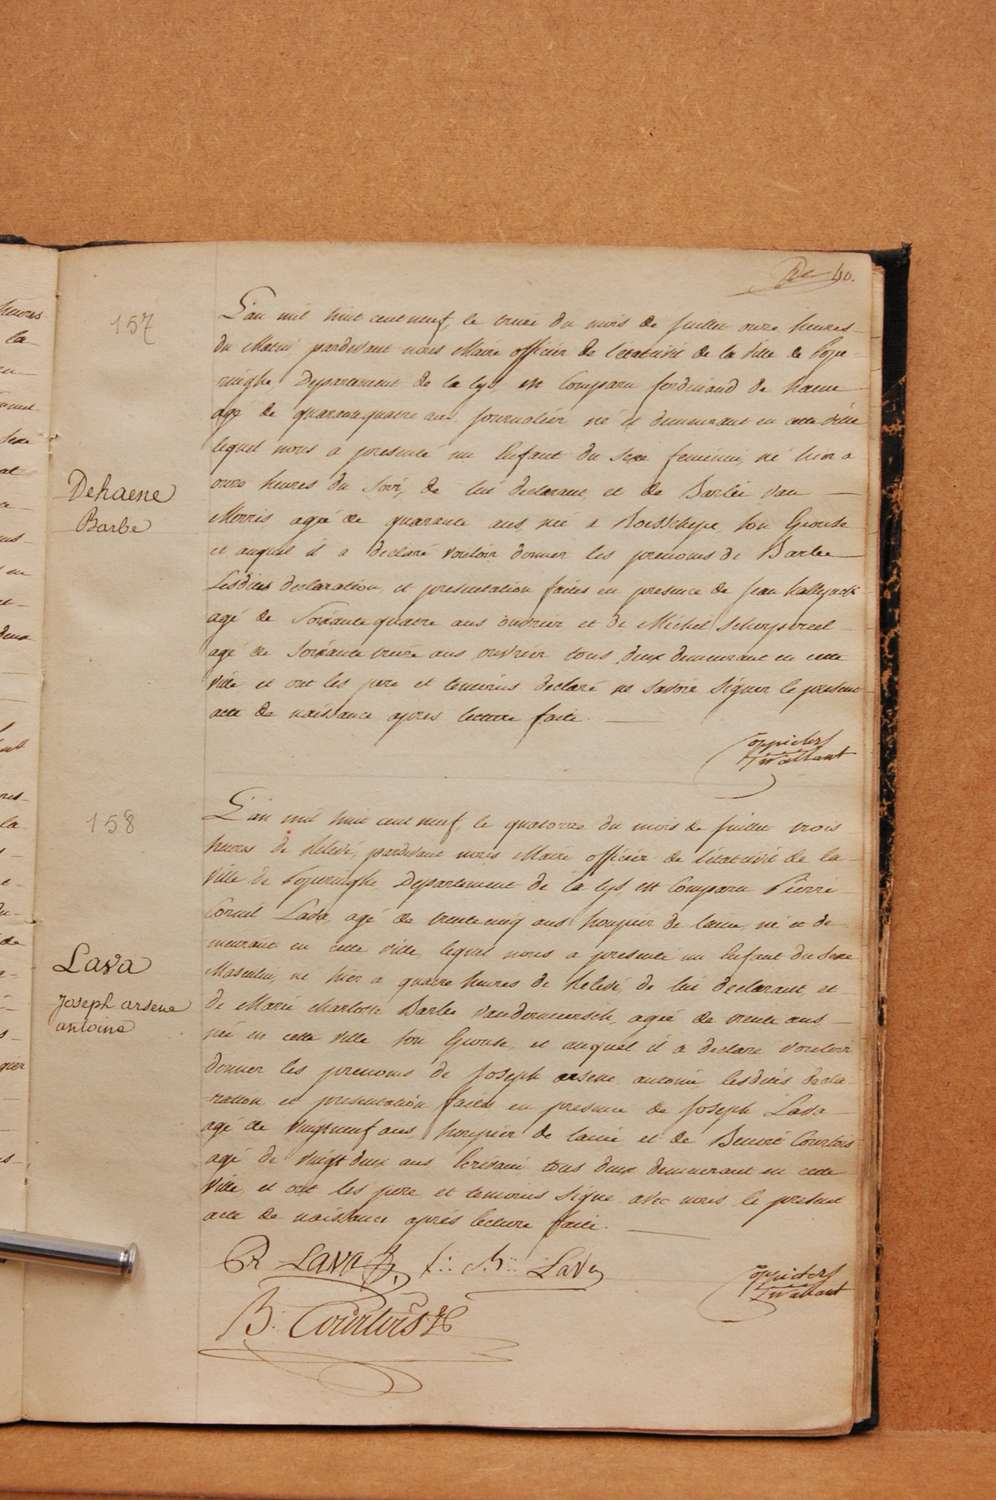 40.
157
Dehaene
Barbe
L'an mil huit cent neuf, le treize du mois de juillet onze heures
du Matin pardevant nous Maire officier de l'état civil de la ville de Pope-
ringhe Departement de la Lys est Comparu ferdinand de haene
agé de quarante quatre ans journalier né et demeurant en cette ville
lequel nous a presenté un Enfant du Sexe feminin, né hier a
onze heures du Soir, de lui declarant, et de Barbe Van
Morris agée de quarante ans née a son Epouse
et auquel il a declaré vouloir donner les prenoms de Barbe
Lesdites declaration et presentation faites en presence de jean
agé de Soixante quatre ans ouvrier et de Michel
agé de Soixante treize ans ouvrier tous deux demeurant en cette
ville et ont les pere et temoins declaré ne savoir signer le present
acte de naissance apres lecture faite.
158
Lava
joseph arsene
antoine
L'an mil huit cent neuf, le quatorze du mois de juillet trois
heures de Relevé, pardevant nous Maire officier de l'état civil de la
ville de Poperinghe Departement de la Lys est Comparu Pierre
Corneil Lava, agé de trente cinq ans houpier de laine, né et de-
meurant en cette ville, lequel nous a presenté un Enfant du Sexe
Masculin, né hier a quatre heures de Relevé, de lui declarant et
de Marie Charlotte Barbe Vandromersch, agée de trente ans
née en cette ville son Epouse, et auquel il a declaré vouloir
donner les prenoms de joseph arsene antoine lesdites decla-
ration et presentation faites en presence de joseph Lava
agé de vingt neuf ans houpier de laine et de Benoit Courtois
agé de vingt deux ans Ecrivain tous deux demeurant en cette
Ville, et ont les pere et temoins signé avec nous le present
acte de naissance après lecture faite.
LAVA
Lava
B. Courtois